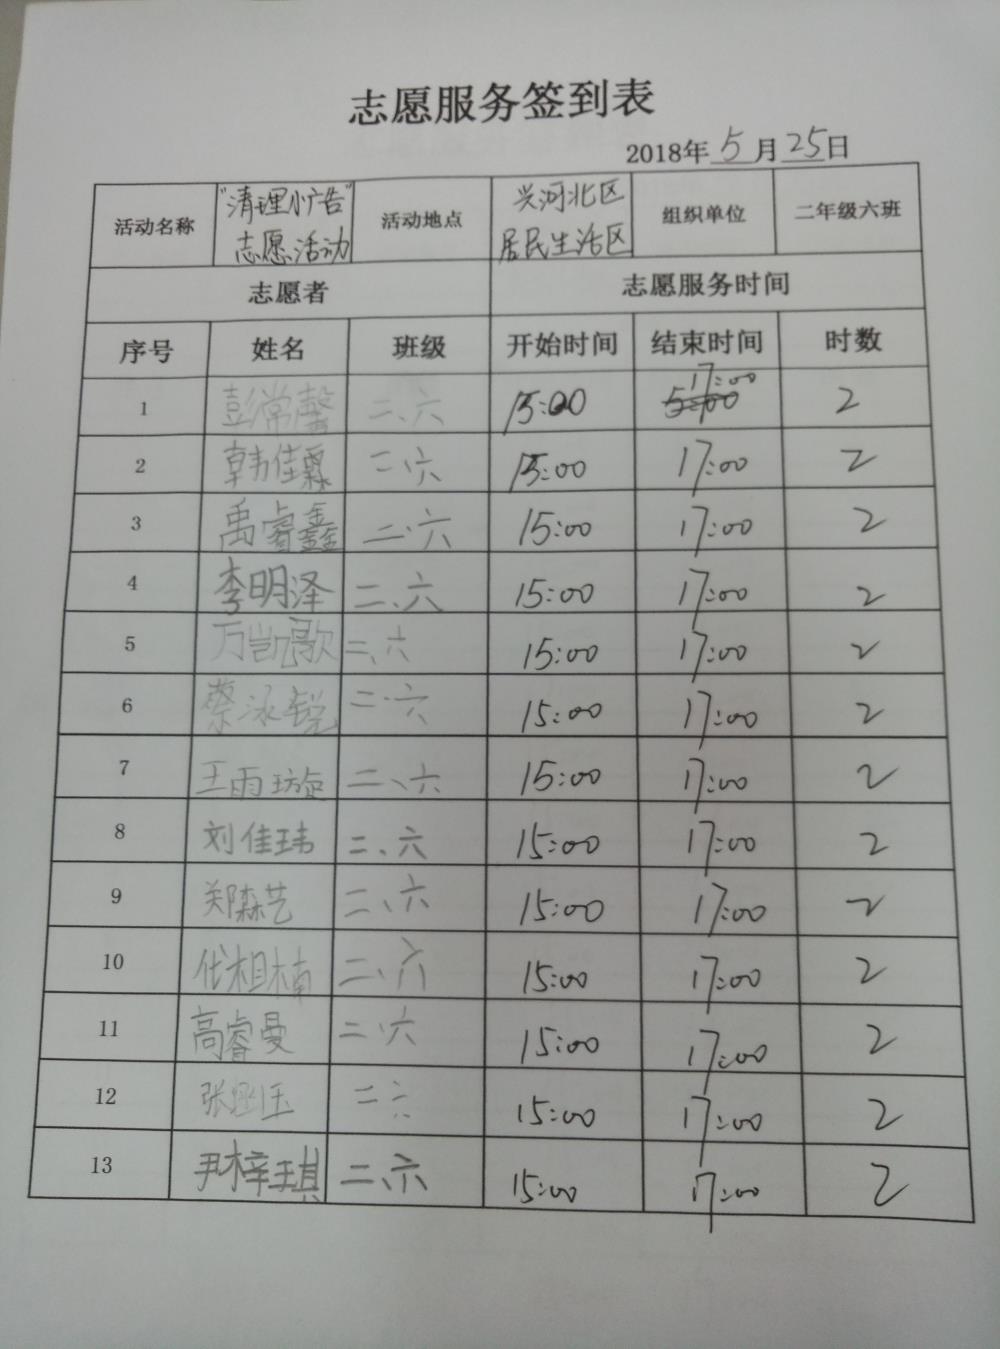 志愿服务签到表
2018年 5 月 25 日
活动名称 "清理小广告" 志愿活动 活动地点 兴河北区 居民生活区 组织单位 二年级六班
志愿者 志愿服务时间
序号 姓名 班级 开始时间 结束时间 时数
1 彭常馨 二、六 15:00 17:00 2
2 韩佳霖 二、六 15:00 17:00 2
3 禹睿鑫 二、六 15:00 17:00 2
4 李明泽 二、六 15:00 17:00 2
5 万凯歌 二、六 15:00 17:00 2
6 蔡泳锐 二、六 15:00 17:00 2
7 王雨璇 二、六 15:00 17:00 2
8 刘佳玮 二、六 15:00 17:00 2
9 郑森艺 二、六 15:00 17:00 2
10 代相楠 二、六 15:00 17:00 2
11 高睿曼 二、六 15:00 17:00 2
12 二六 15:00 17:00 2
13 尹梓琪 二、六 15:00 17:00 2